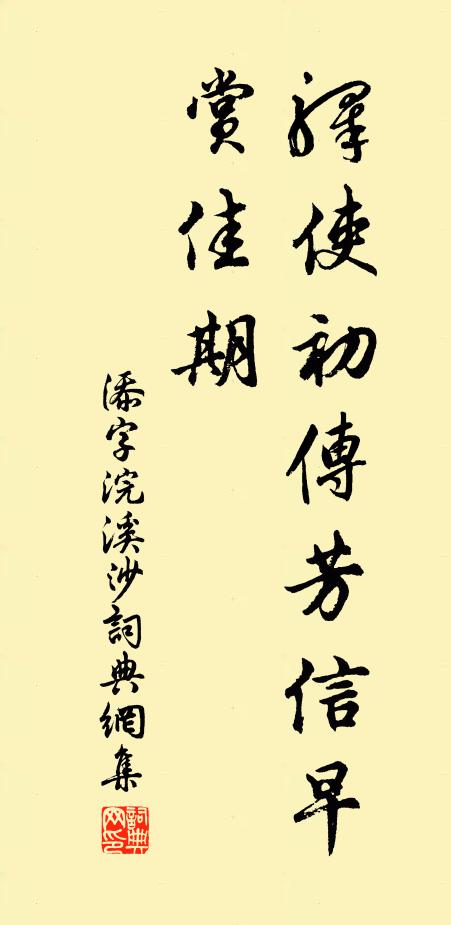 驛使初傳芳信早
賞佳期
添字浣溪沙詞典網集
詞典
网印